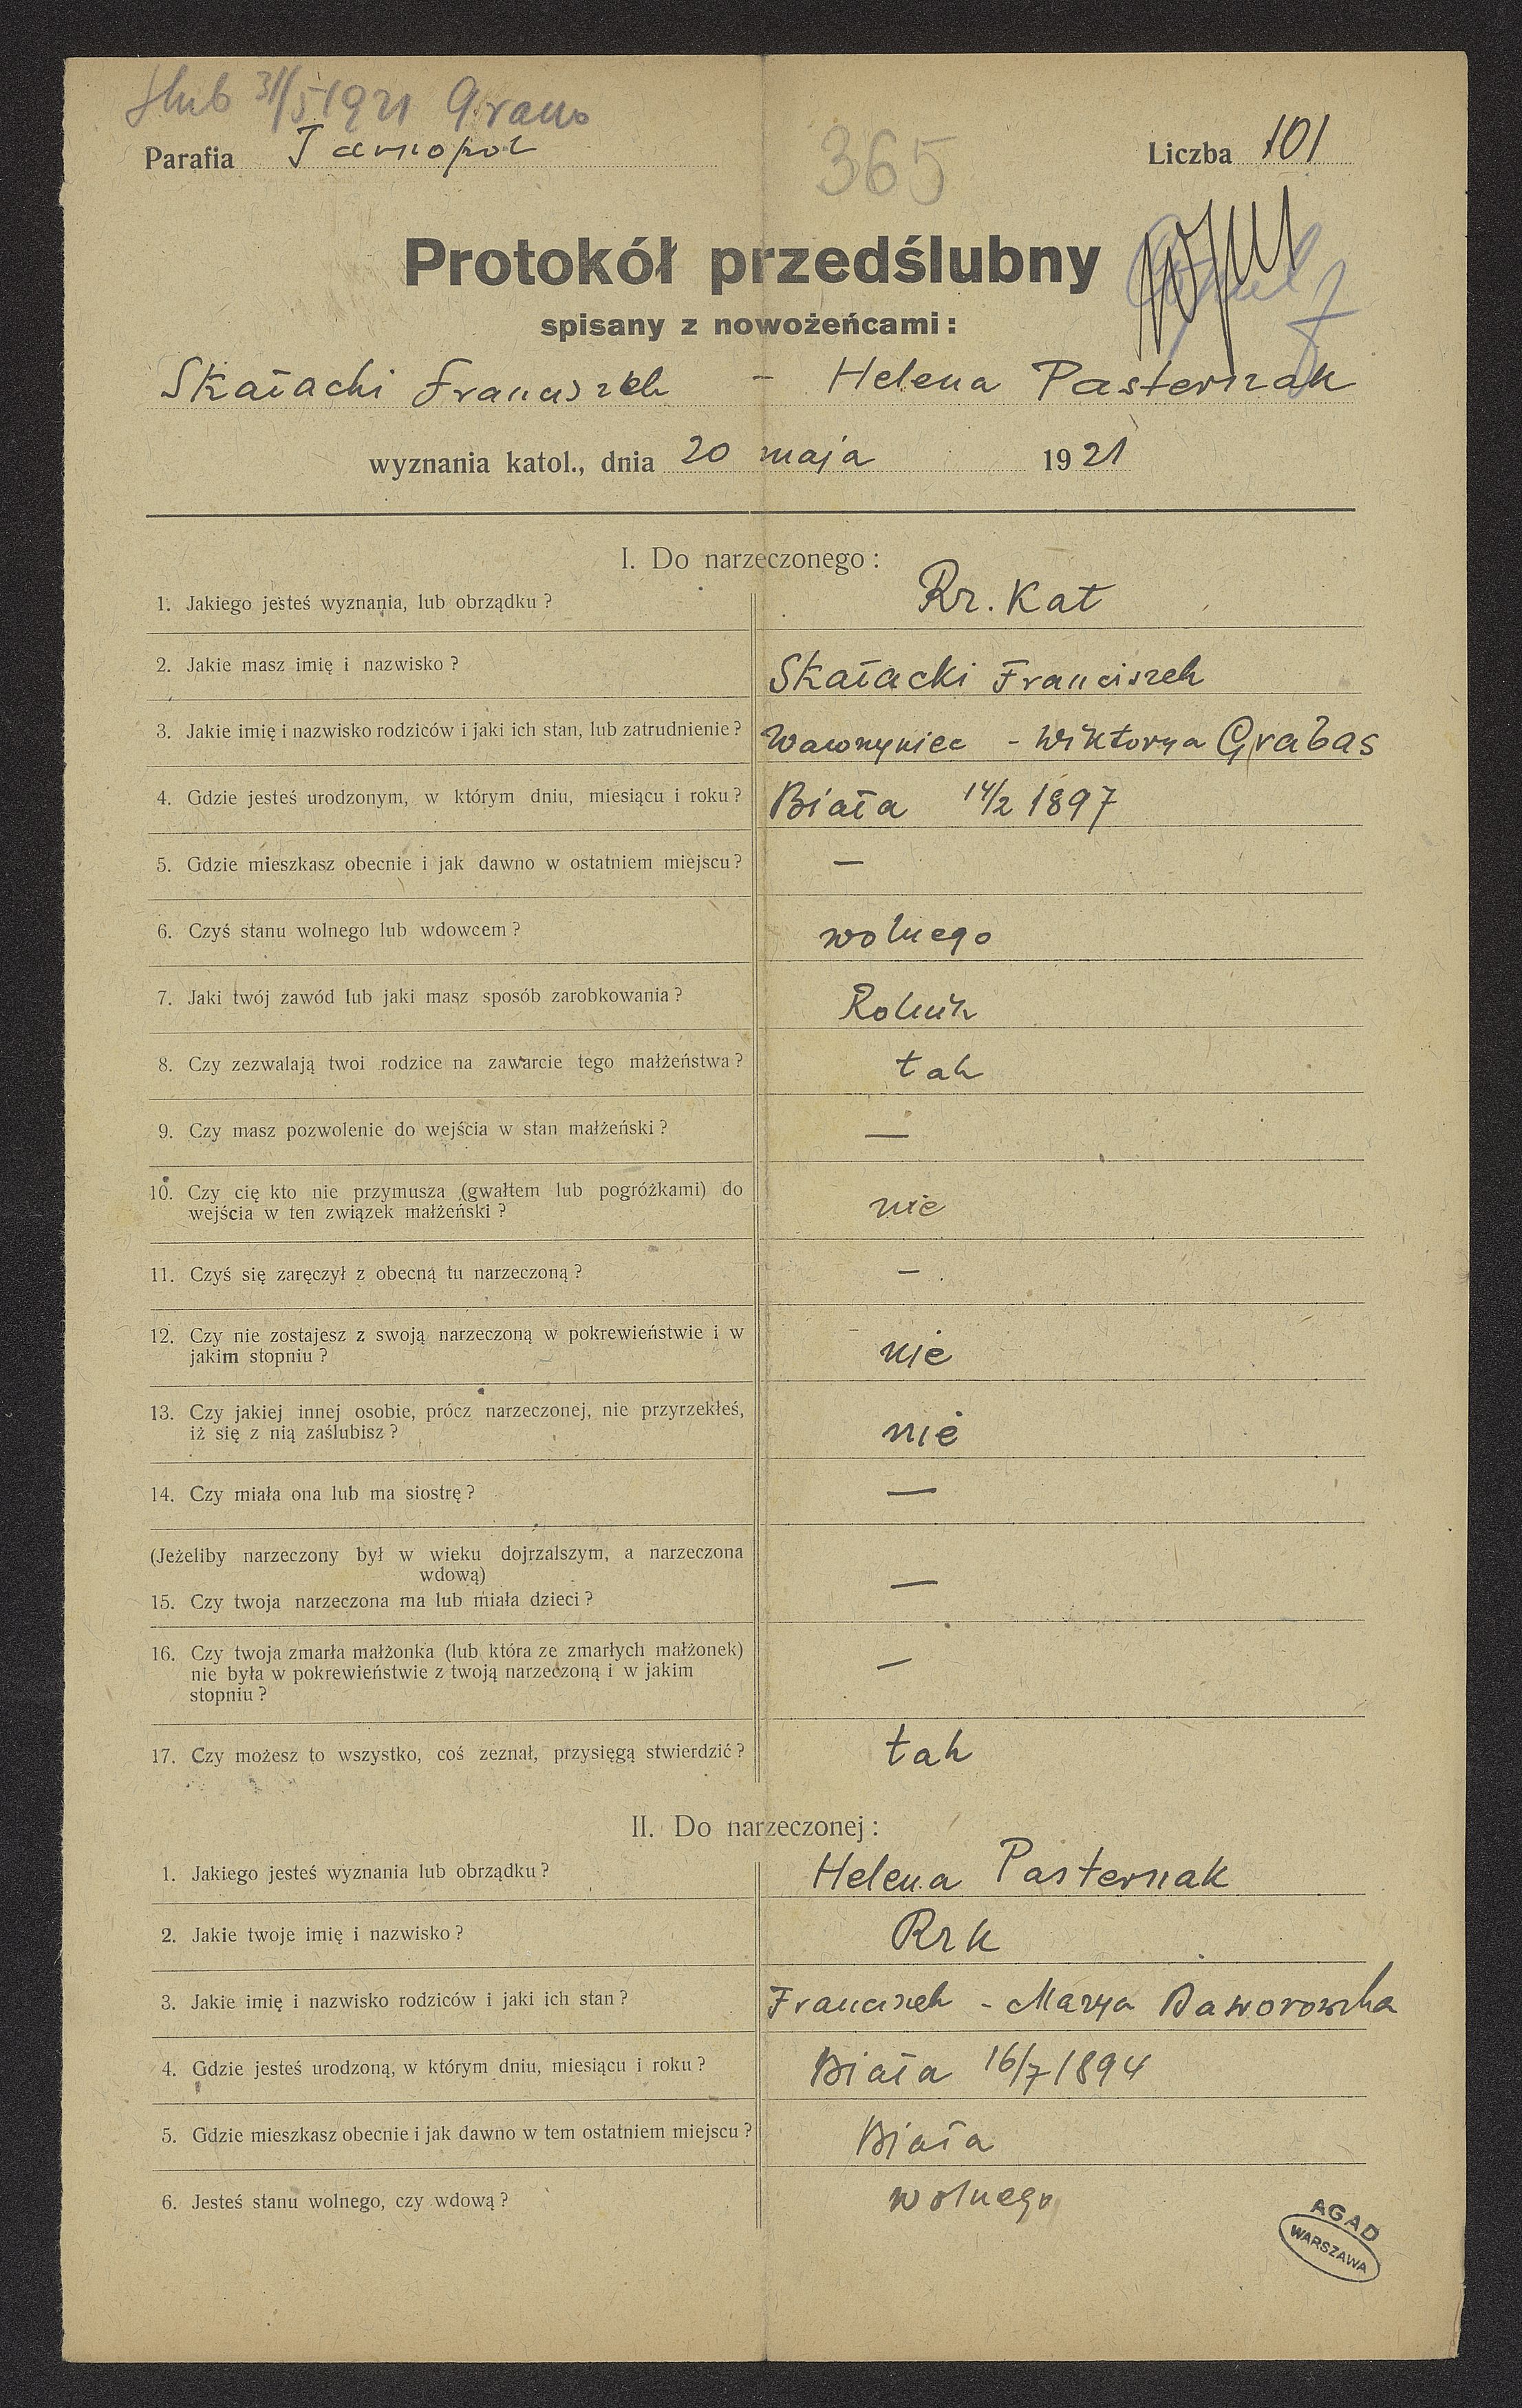 ślub 31/5 1921 Grano
Parafia Tarnopol
365
Liczba 101
Protokół przedślubny
spisany z nowożeńcami:
Skałacki Franciszek - Helena Pasternak
wyznania katol., dnia 20 maja 1921
I. Do narzeczonego:
1. Jakiego jesteś wyznania, lub obrządku? Rz. Kat
2. Jakie masz imię i nazwisko? Skałacki Franciszek
3. Jakie imię i nazwisko rodziców i jaki ich stan, lub zatrudnienie? Wawrzyniec - Wiktorya Grabas
4. Gdzie jesteś urodzonym, w którym dniu, miesiącu i roku? Biała 14/2 1897
5. Gdzie mieszkasz obecnie i jak dawno w ostatniem miejscu? —
6. Czyś stanu wolnego lub wdowcem? wolnego
7. Jaki twój zawód lub jaki masz sposób zarobkowania? Rolnik
8. Czy zezwalają twoi rodzice na zawarcie tego małżeństwa? tak
9. Czy masz pozwolenie do wejścia w stan małżeński? —
10. Czy cię kto nie przymusza (gwałtem lub pogróżkami) do
wejścia w ten związek małżeński? nie
11. Czyś się zaręczył z obecną tu narzeczoną? —
12. Czy nie zostajesz z swoją narzeczoną w pokrewieństwie i w
jakim stopniu? nie
13. Czy jakiej innej osobie, prócz narzeczonej, nie przyrzekłeś,
iż się z nią zaślubisz? nie
14. Czy miała ona lub ma siostrę? —
(Jeżeliby narzeczony był w wieku dojrzalszym, a narzeczona
wdową)
15. Czy twoja narzeczona ma lub miała dzieci? —
16. Czy twoja zmarła małżonka (lub która ze zmarłych małżonek)
nie była w pokrewieństwie z twoją narzeczoną i w jakim
stopniu? —
17. Czy możesz to wszystko, coś zeznał, przysięgą stwierdzić? tak
II. Do narzeczonej:
1. Jakiego jesteś wyznania lub obrządku? Helena Pasternak
2. Jakie twoje imię i nazwisko? Rzk
3. Jakie imię i nazwisko rodziców i jaki ich stan? Franciszek - Marya Baworowska
4. Gdzie jesteś urodzoną, w którym dniu, miesiącu i roku? Biała 16/7 1894
5. Gdzie mieszkasz obecnie i jak dawno w tem ostatniem miejscu? Biała
6. Jesteś stanu wolnego, czy wdową? wolnego
AGAD
WARSZAWA